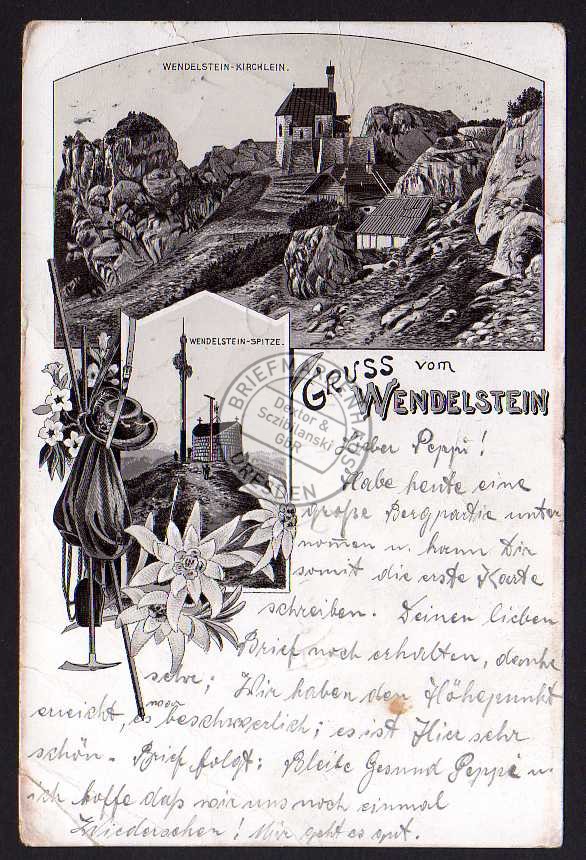 WENDELSTEIN-KIRCHLEIN.
WENDELSTEIN-SPITZE.
GRUSS vom
WENDELSTEIN
BRIEFMARKENHAUS
Dektor &
Sczibilanski
GbR
DRESDEN
Lieber Peppi!
Habe heute eine
große Bergpartie unter
nommen u. kann Dir
somit die erste Karte
schreiben. Deinen lieben
Brief noch erhalten, danke
sehr; Wir haben den Höhepunkt
erreicht, es war beschwerlich; es ist Hier sehr
schön. Brief folgt: Bleibe Gesund Peppi u.
ich hoffe daß wir uns noch einmal
Wiedersehen! Mir geht es gut.